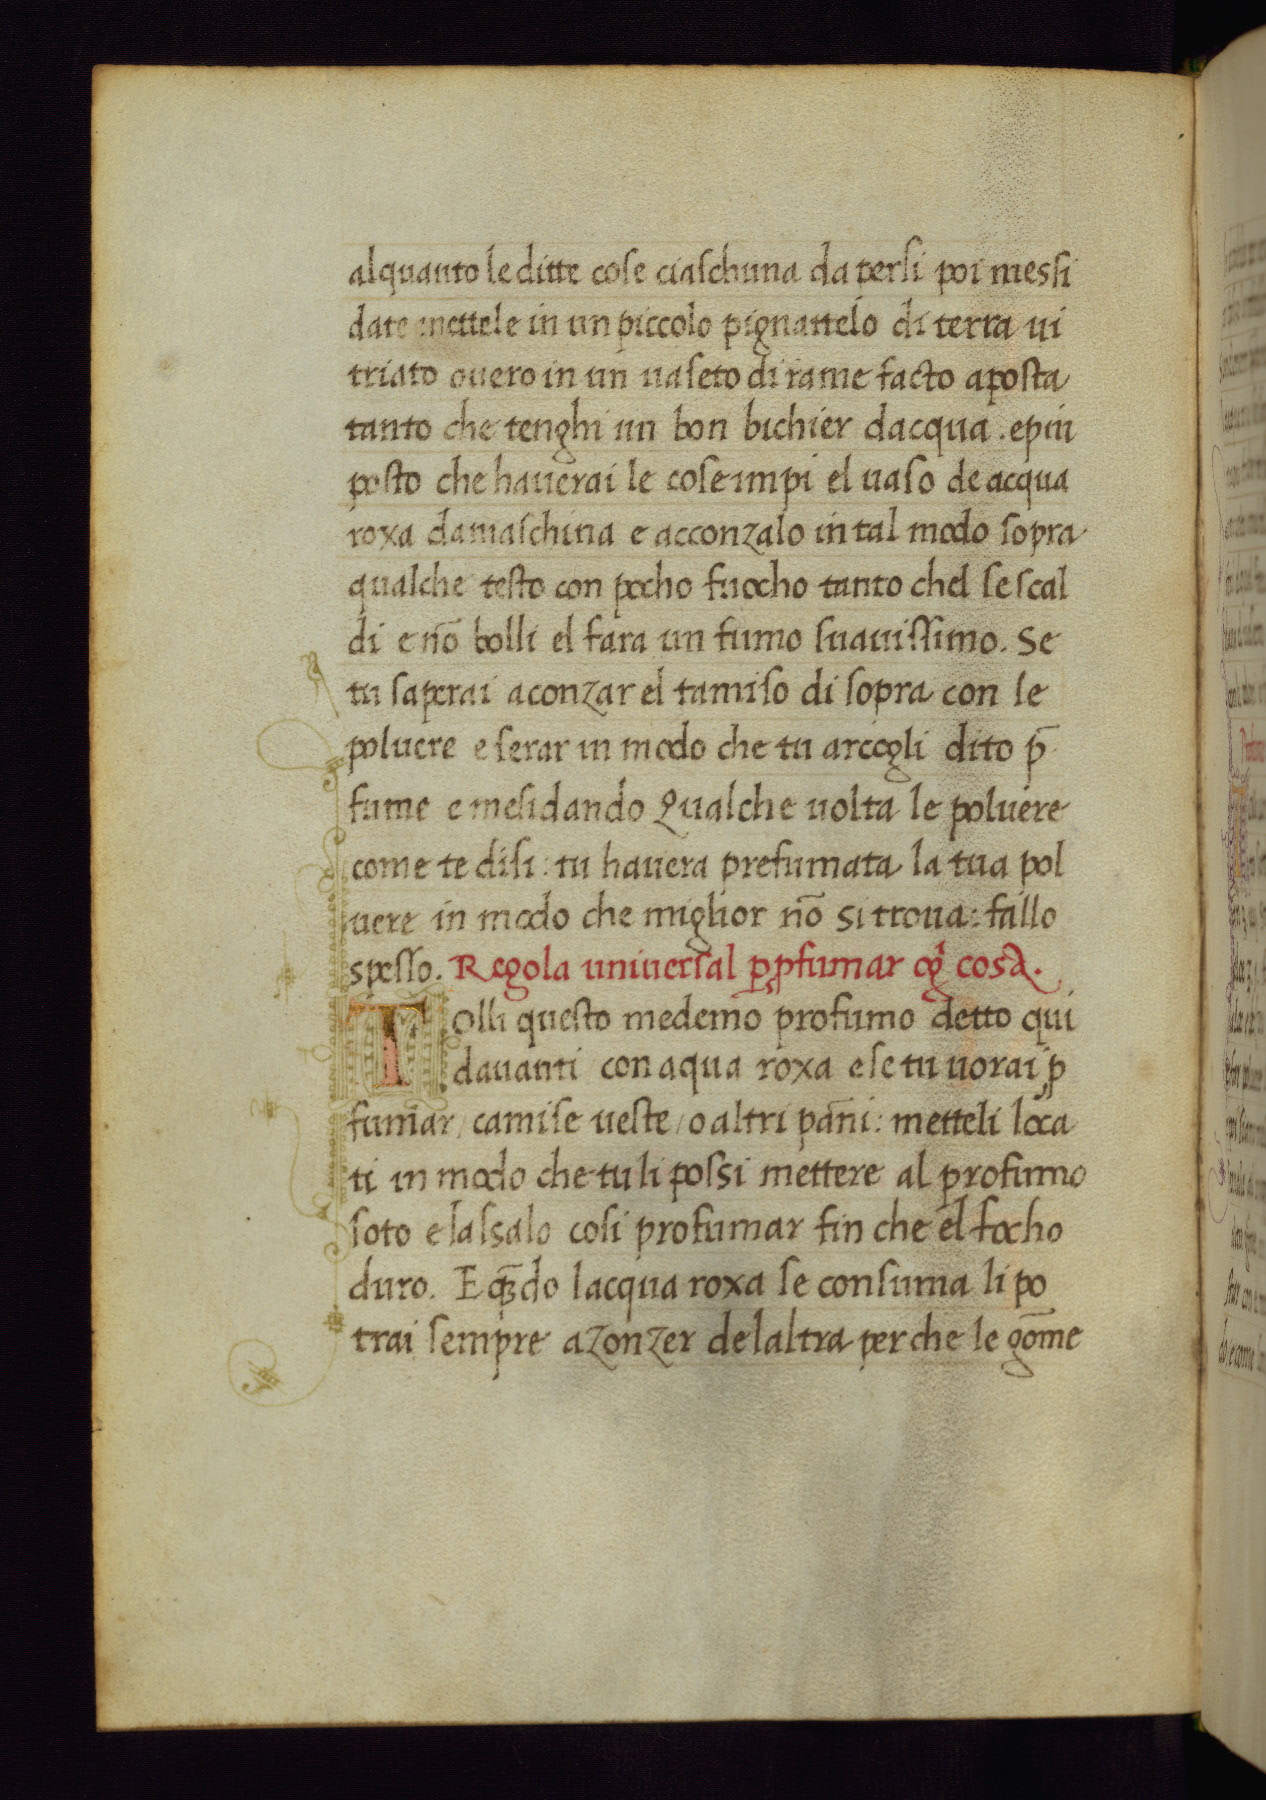 alquanto le ditte cose ciaschuna da persi poi messi
date mettele in un piccolo pignattelo di terra ui
triato ouero in un uaseto di rame facto aposta
tanto che tenghi un bon bichier dacqua . epiu
posto che hauerai le cose impi el uaso de acqua
roxa damaschina e acconzalo in tal modo sopra
qualche testo con pocho fuocho tanto chel se scal
di e nō bolli el fara un fumo suauissimo. Se
tu saperai aconzar el tamiso di sopra con le
poluere e serar in modo che tu arcogli dito p̄
fume e mesidando Qualche uolta le poluere
come te disi : tu hauera prefumata la tua pol
uere in modo che miglior nō si troua : fallo
spesso. Regola uniuersal ꝑ ꝓfumar og̃ cosa.
Tolli questo medemo profumo detto qui
dauanti con aqua roxa e se tu uorai ꝓ
fumar / camise ueste / o altri pañi : metteli loca
ti in modo che tu li possi mettere al profumo
soto e lassalo cosi profumar fin che el focho
duro. E qꝫ̄do lacqua roxa se consuma li po
trai sempre azonzer de laltra per che le gōme